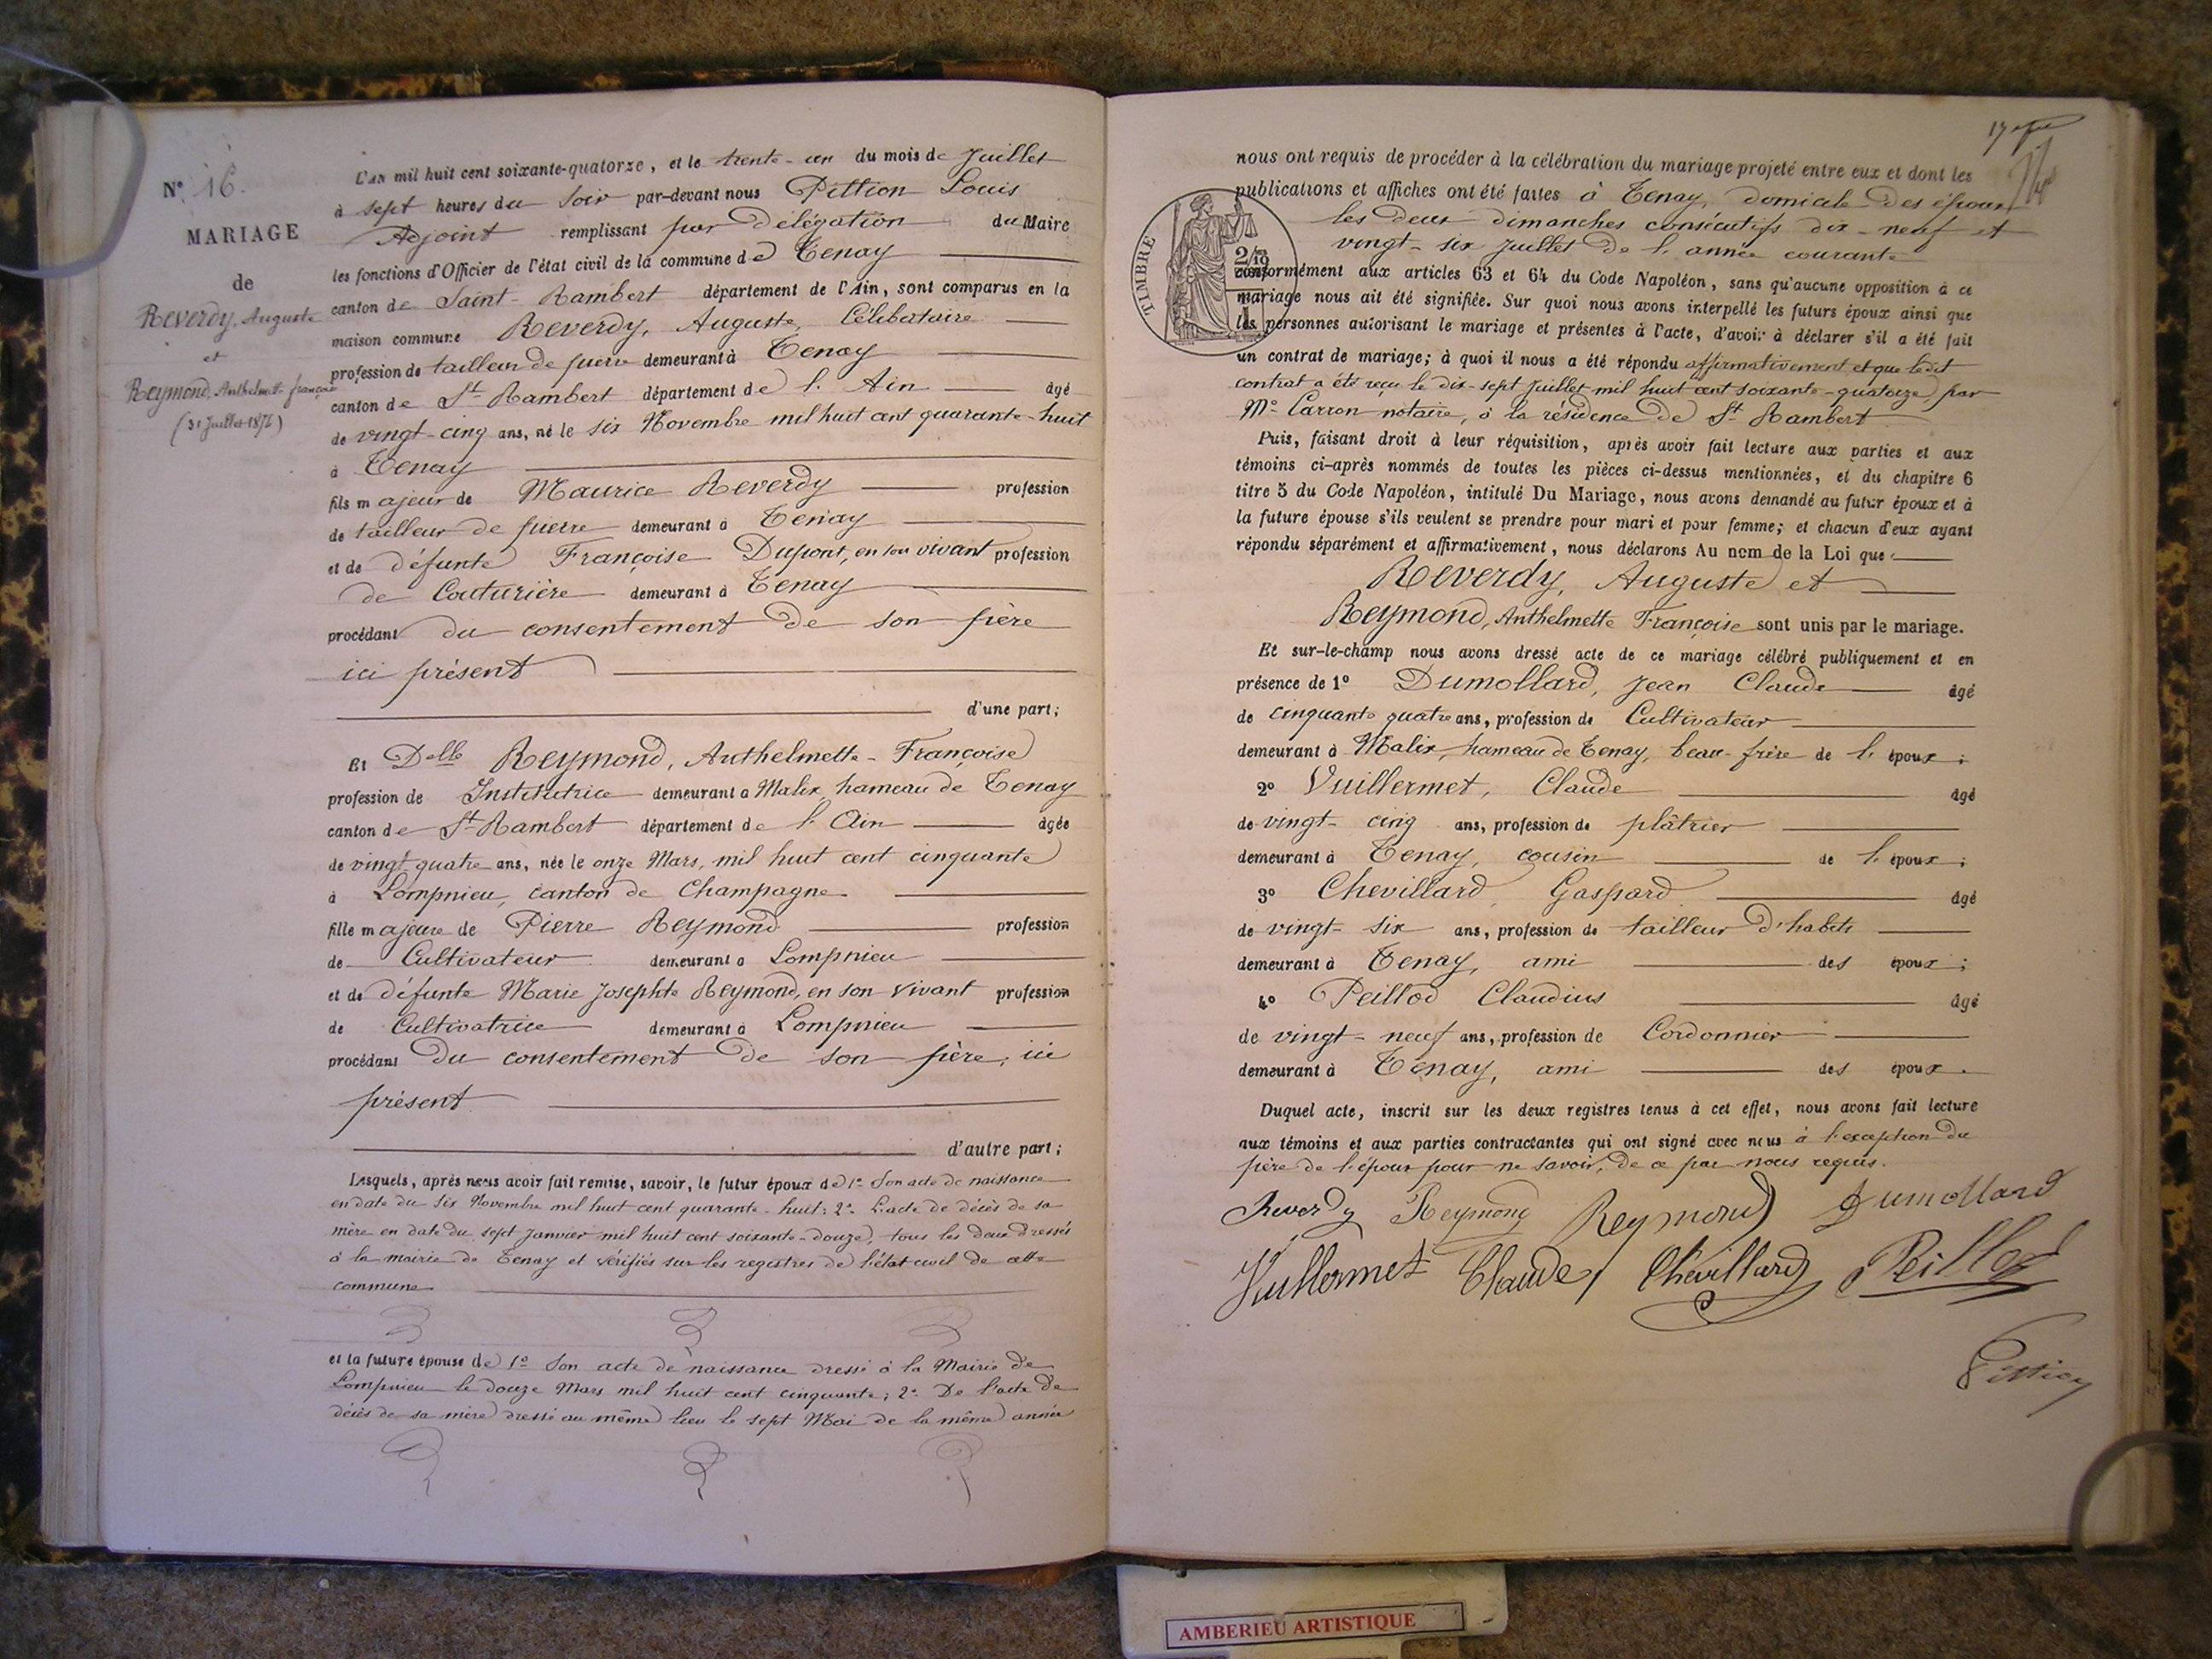 N° 16.
MARIAGE
de
Reverdy, Auguste
et
Reymond, Anthelmette françoise
(31 Juillet 1874)
L'an mil huit cent soixante-quatorze, et le trente-un du mois de Juillet
à sept heures du Soir par-devant nous Pittion Louis
Adjoint remplissant par délégation du Maire
les fonctions d'Officier de l'état civil de la commune de Tenay
canton de Saint-Rambert département de l'Ain, sont comparus en la
maison commune Reverdy, Auguste, Célibataire
profession de tailleur de pierre demeurant à Tenay
canton de St Rambert département de l'Ain âgé
de vingt-cinq ans, né le six Novembre mil huit cent quarante-huit
à Tenay
fils majeur de Maurice Reverdy profession
de tailleur de pierre demeurant à Tenay
et de défunte Françoise Dupont, en son vivant profession
de Couturière demeurant à Tenay
procédant du consentement de son père
ici présent
d'une part;
Et Delle Reymond, Anthelmette-Françoise
profession de Institutrice demeurant à Malix, hameau de Tenay
canton de St Rambert département de l'Ain âgée
de vingt quatre ans, née le onze Mars, mil huit cent cinquante
à Lompnieu, canton de Champagne
fille majeure de Pierre Reymond profession
de Cultivateur demeurant à Lompnieu
et de défunte Marie Josephte Reymond, en son vivant profession
de Cultivatrice demeurant à Lompnieu
procédant du consentement de son père, ici
présent
d'autre part;
Lesquels, après nous avoir fait remise, savoir, le futur époux de 1° Son acte de naissance
en date du six Novembre mil huit cent quarante-huit; 2° L'acte de décès de sa
mère en date du sept Janvier mil huit cent soixante-douze, tous les deux dressés
à la mairie de Tenay et vérifiés sur les registres de l'état civil de cette
commune
et la future épouse de 1° Son acte de naissance dressé à la Mairie de
Lompnieu le douze Mars mil huit cent cinquante; 2° De l'acte de
décès de sa mère dressé au même lieu le sept Mai de la même année
nous ont requis de procéder à la célébration du mariage projeté entre eux et dont les
publications et affiches ont été faites à Tenay, domicile des époux
les deux dimanches consécutifs dix-neuf et
vingt-six Juillet de l'année courante
TIMBRE
2/10
conformément aux articles 63 et 64 du Code Napoléon, sans qu'aucune opposition à ce
mariage nous ait été signifiée. Sur quoi nous avons interpellé les futurs époux ainsi que
les personnes autorisant le mariage et présentes à l'acte, d'avoir à déclarer s'il a été fait
un contrat de mariage; à quoi il nous a été répondu affirmativement et que ledit
contrat a été reçu le dix-sept Juillet mil huit cent soixante-quatorze, par
Me Carron notaire, à la résidence de St Rambert
Puis, faisant droit à leur réquisition, après avoir fait lecture aux parties et aux
témoins ci-après nommés de toutes les pièces ci-dessus mentionnées, et du chapitre 6
titre 5 du Code Napoléon, intitulé Du Mariage, nous avons demandé au futur époux et à
la future épouse s'ils veulent se prendre pour mari et pour femme; et chacun d'eux ayant
répondu séparément et affirmativement, nous déclarons Au nom de la Loi que
Reverdy, Auguste et
Reymond, Anthelmette Françoise sont unis par le mariage.
Et sur-le-champ nous avons dressé acte de ce mariage célébré publiquement et en
présence de 1° Dumollard, Jean Claude âgé
de cinquante quatre ans, profession de Cultivateur
demeurant à Malix, hameau de Tenay, beau-frère de l'époux;
2° Vuillermet, Claude âgé
de vingt-cinq ans, profession de plâtrier
demeurant à Tenay, cousin de l'époux;
3° Chevillard, Gaspard âgé
de vingt-six ans, profession de tailleur d'habits
demeurant à Tenay, ami des époux;
4° Peillod Claudius âgé
de vingt-neuf ans, profession de Cordonnier
demeurant à Tenay, ami des époux.
Duquel acte, inscrit sur les deux registres tenus à cet effet, nous avons fait lecture
aux témoins et aux parties contractantes qui ont signé avec nous à l'exception du
père de l'époux pour ne savoir, de ce par nous requis.
Reverdy Reymond Reymond Dumollard
Vullermet Claude Chevillard Peillod
Pittion
AMBERIEU ARTISTIQUE